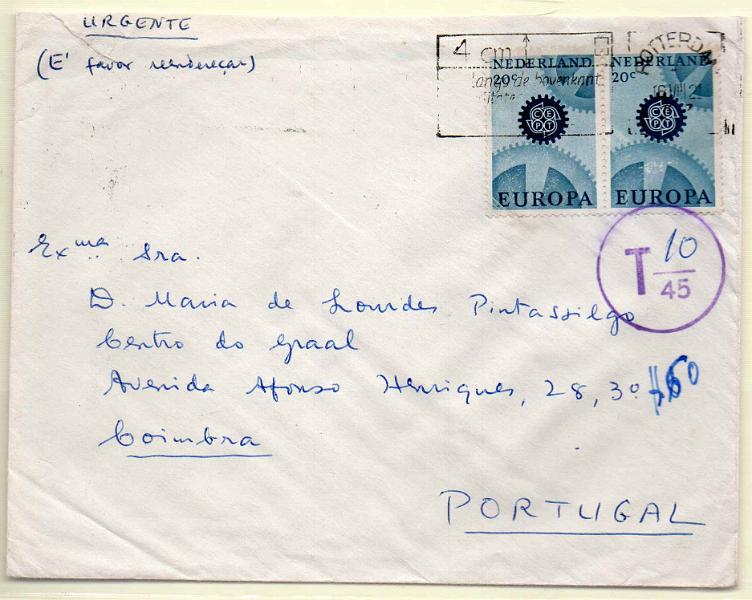 URGENTE
(E' favor reendereçar)
4 cm
langs de bovenkant
ROTTERDAM
NEDERLAND
20c
CEPT
EUROPA
NEDERLAND
20c
CEPT
EUROPA
T 10
45
Exma Sra.
D. Maria de Lourdes Pintassilgo
Centro do Graal
Avenida Afonso Henriques, 28, 3º
Coimbra
PORTUGAL